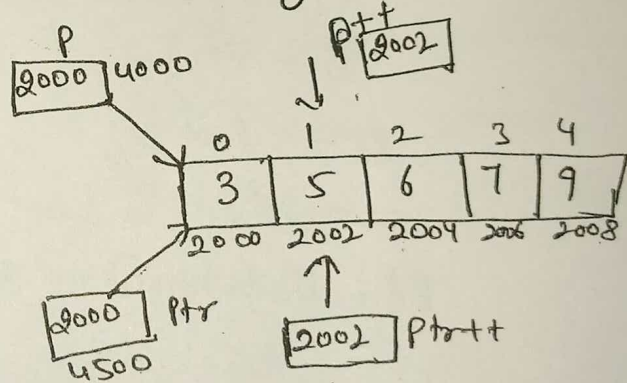 P
P++
2000
4000
2002
0 1 2 3 4
3 5 6 7 9
2000 2002 2004 2006 2008
2000
Ptr
4500
2002
Ptr++